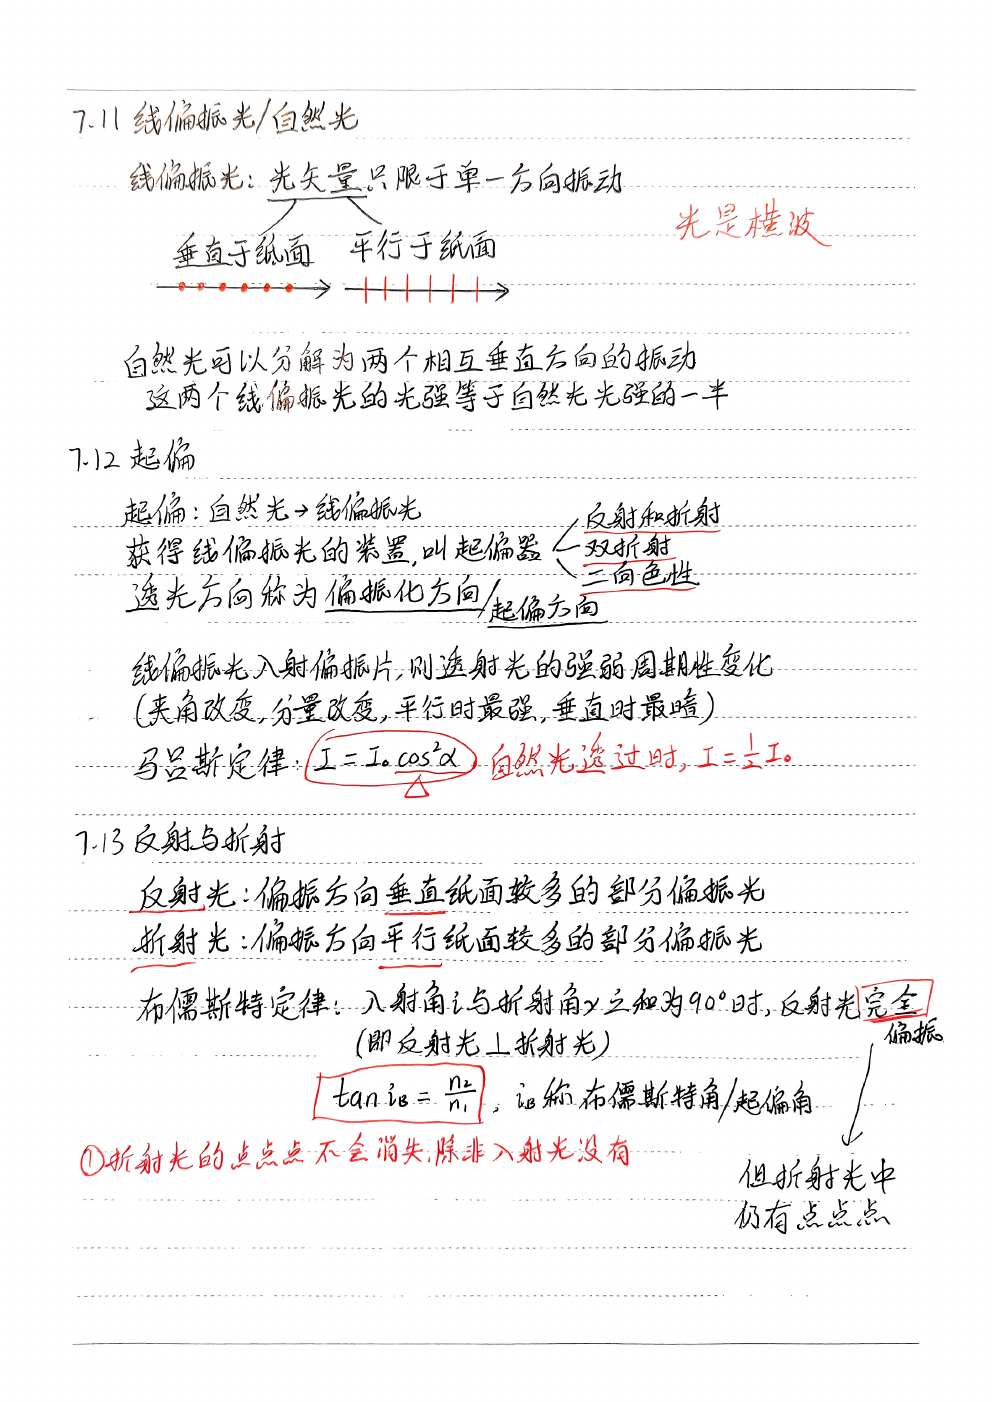 7.11 线偏振光/自然光
线偏振光：光矢量只限于单一方向振动
光是横波
垂直于纸面 平行于纸面
自然光可以分解为两个相互垂直方向的振动
这两个线偏振光的光强等于自然光光强的一半
7.12 起偏
起偏：自然光→线偏振光
获得线偏振光的装置,叫起偏器
反射和折射
双折射
二向色性
透光方向称为偏振化方向/起偏方向
线偏振光入射偏振片,则透射光的强弱周期性变化
(夹角改变,分量改变,平行时最强,垂直时最暗)
马吕斯定律：I=I₀cos²α 自然光透过时, I=½I₀
7.13 反射与折射
反射光：偏振方向垂直纸面较多的部分偏振光
折射光：偏振方向平行纸面较多的部分偏振光
布儒斯特定律：入射角i与折射角γ之和为90°时,反射光完全偏振
(即反射光⊥折射光)
tan i_B = n₂/n₁, i_B称布儒斯特角/起偏角
①折射光的点点点不会消失,除非入射光没有
但折射光中
仍有点点点